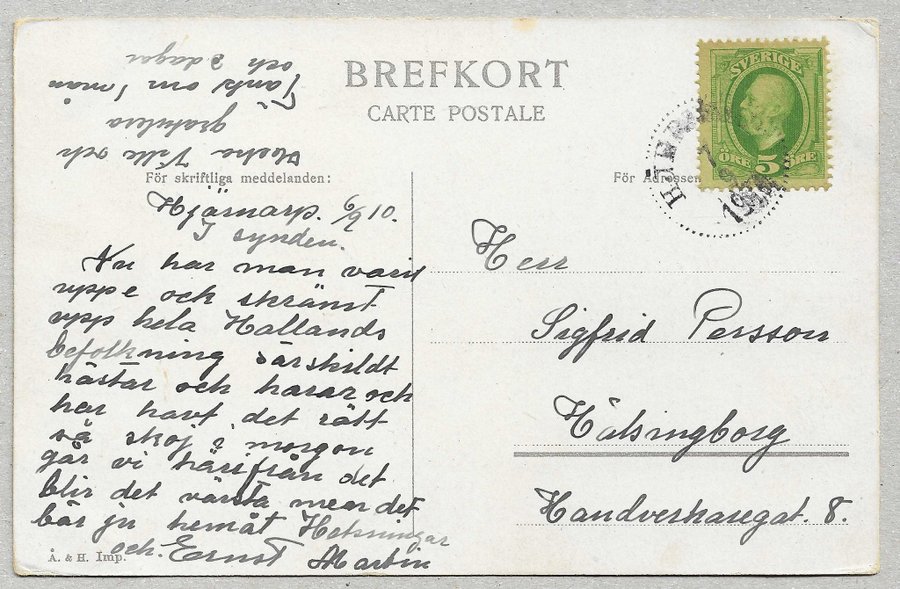 BREFKORT
CARTE POSTALE
SVERIGE
ÖRE 5 ÖRE
För skriftliga meddelanden:
För Adressen
Hjärnarp. 6/9 10.
I synden.
Nu har man varit
uppe och skrämt
upp hela Hallands
befolkning särskildt
hästar och harar och
har havt det rätt
så skoj i morgon
går vi härifrån det
blir det värsta men det
bär ju hemåt Helsningar
och. Ernst Martin
och
gratulera
Tant om 1 mån
och 3 dagar
Herr
Sigfrid Persson
Hälsingborg
Handverkaregat. 8.
Å. & H. Imp.